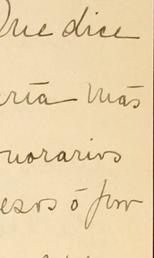 Que dice
ería más
onorarios
esos ó por